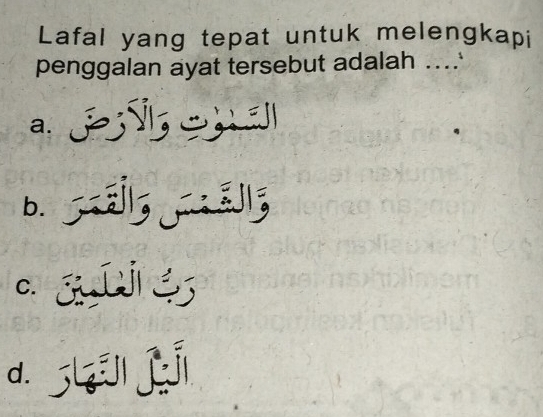 Lafal yang tepat untuk melengkapi
penggalan ayat tersebut adalah ....
a. السَّمٰوٰتِ وَالْاَرْضَ
b. وَّالشَّمْسَ وَالْقَمَرَ
c. رَبُّ الْعٰلَمِيْنَ
d. الَّيْلَ النَّهَارَ